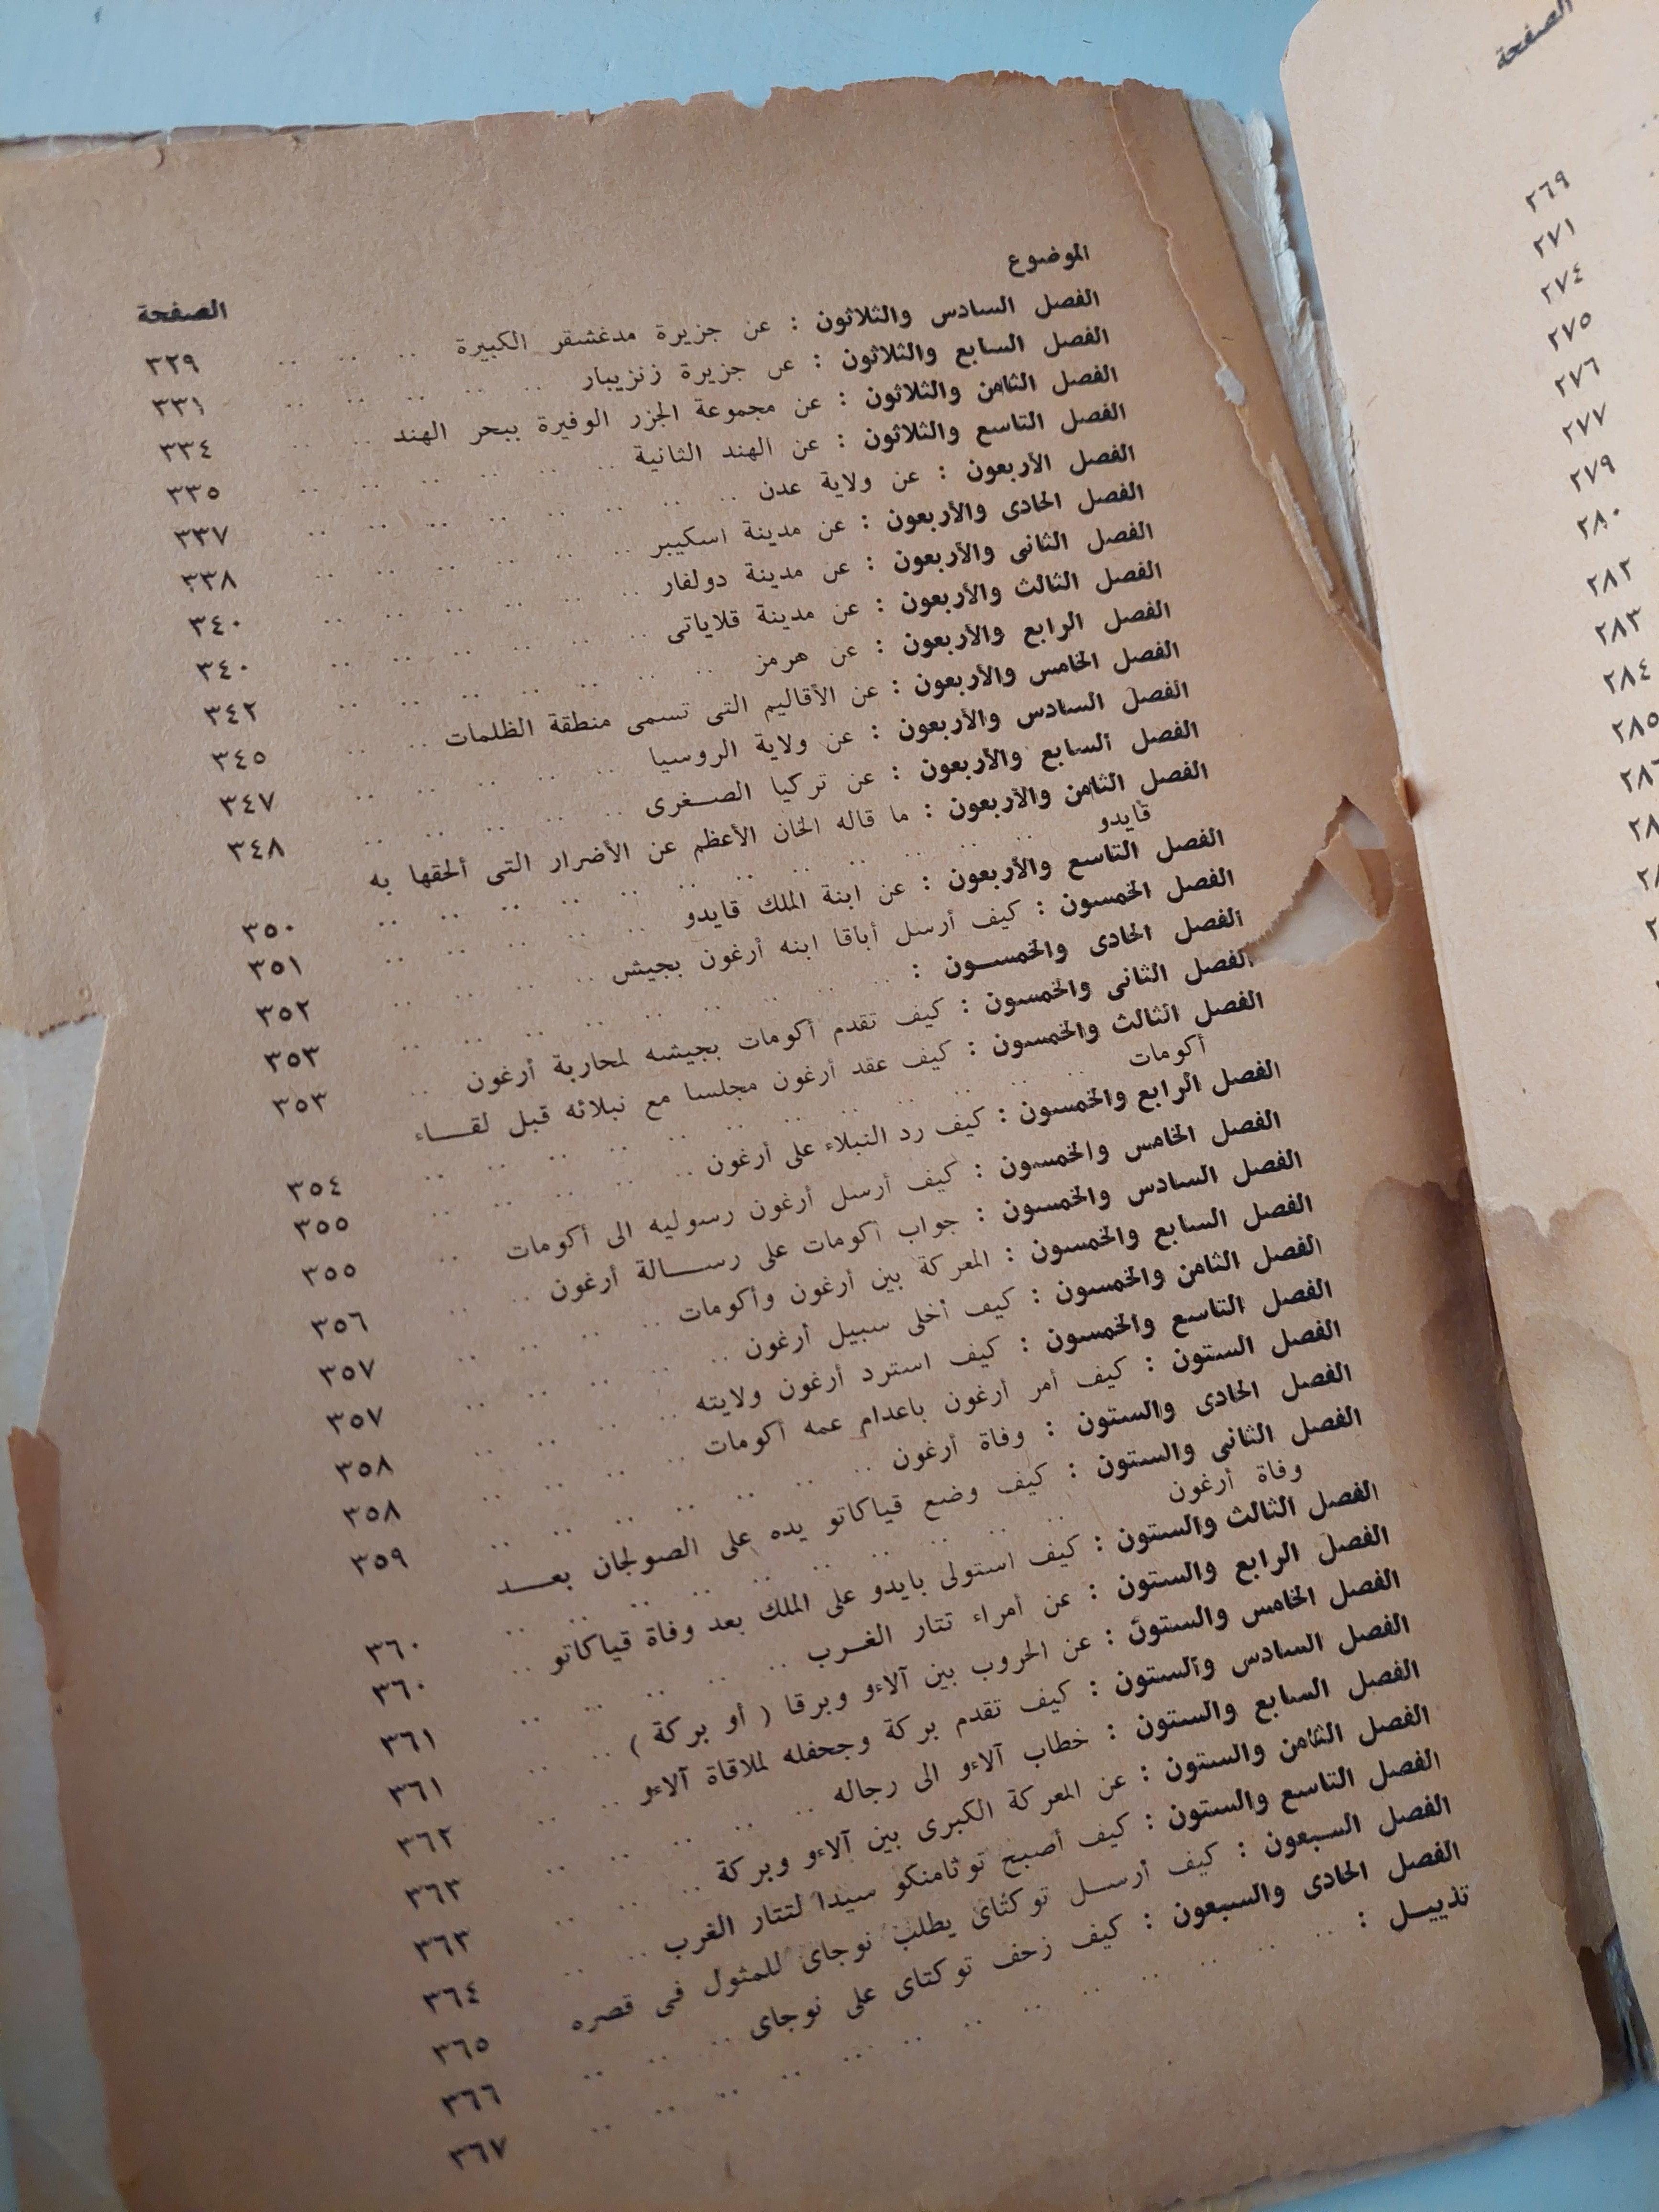 الموضوع الصفحة
الفصل السادس والثلاثون : عن جزيرة مدغشقر الكبيرة .. .. .. ٣٢٩
الفصل السابع والثلاثون : عن جزيرة زنزيبار .. .. .. .. .. ٣٣١
الفصل الثامن والثلاثون : عن مجموعة الجزر الوفيرة ببحر الهند .. .. ٣٣٤
الفصل التاسع والثلاثون : عن الهند الثانية .. .. .. .. .. ٣٣٥
الفصل الأربعون : عن ولاية عدن .. .. .. .. .. .. .. ٣٣٧
الفصل الحادى والأربعون : عن مدينة اسكيبر .. .. .. .. .. ٣٣٨
الفصل الثانى والأربعون : عن مدينة دولفار .. .. .. .. .. ٣٤٠
الفصل الثالث والأربعون : عن مدينة قلاياتى .. .. .. .. .. ٣٤٠
الفصل الرابع والأربعون : عن هرمز .. .. .. .. .. .. ٣٤٢
الفصل الخامس والأربعون : عن الأقاليم التى تسمى منطقة الظلمات .. .. ٣٤٥
الفصل السادس والأربعون : عن ولاية الروسيا .. .. .. .. .. ٣٤٧
الفصل السابع والأربعون : عن تركيا الصغرى .. .. .. .. .. ٣٤٨
الفصل الثامن والأربعون : ما قاله الخان الأعظم عن الأضرار التى ألحقها به
قايدو .. .. .. .. .. .. .. .. .. ٣٥٠
الفصل التاسع والأربعون : عن ابنة الملك قايدو .. .. .. .. ٣٥١
الفصل الخمسون : كيف أرسل أباقا ابنه أرغون بجيش .. .. .. .. ٣٥٢
الفصل الحادى والخمسون : .. .. .. .. .. .. .. ٣٥٣
الفصل الثانى والخمسون : كيف تقدم أكومات بجيشه لمحاربة أرغون .. ٣٥٣
الفصل الثالث والخمسون : كيف عقد أرغون مجلسا مع نبلائه قبل لقاء
أكومات .. .. .. .. .. .. .. .. .. ٣٥٤
الفصل الرابع والخمسون : كيف رد النبلاء على أرغون .. .. .. .. ٣٥٥
الفصل الخامس والخمسون : كيف أرسل أرغون رسوليه الى أكومات .. ٣٥٥
الفصل السادس والخمسون : جواب أكومات على رسالة أرغون .. .. ٣٥٦
الفصل السابع والخمسون : المعركة بين أرغون وأكومات .. .. .. .. ٣٥٧
الفصل الثامن والخمسون : كيف أخلى سبيل أرغون .. .. .. .. ٣٥٧
الفصل التاسع والخمسون : كيف استرد أرغون ولايته .. .. .. .. ٣٥٨
الفصل الستون : كيف أمر أرغون باعدام عمه أكومات .. .. .. .. ٣٥٨
الفصل الحادى والستون : وفاة أرغون .. .. .. .. .. .. ٣٥٩
الفصل الثانى والستون : كيف وضع قياكاتو يده على الصولجان بعد
وفاة أرغون .. .. .. .. .. .. .. .. ٣٦٠
الفصل الثالث والستون : كيف استولى بايدو على الملك بعد وفاة قياكاتو .. ٣٦٠
الفصل الرابع والستون : عن أمراء تتار الغرب .. .. .. .. .. ٣٦١
الفصل الخامس والستون : عن الحروب بين آلاءو وبرقا ( أو بركة ) .. .. ٣٦١
الفصل السادس والستون : كيف تقدم بركة وجحفله لملاقاة آلاءو .. .. ٣٦٢
الفصل السابع والستون : خطاب آلاءو الى رجاله .. .. .. .. .. ٣٦٣
الفصل الثامن والستون : عن المعركة الكبرى بين آلاءو وبركة .. .. .. ٣٦٣
الفصل التاسع والستون : كيف أصبح توثامنكو سيدا لتتار الغرب .. .. ٣٦٤
الفصل السبعون : كيف أرسل توكتاى يطلب نوجاى للمثول فى قصره ٣٦٥
الفصل الحادى والسبعون : كيف زحف توكتاى على نوجاى .. .. .. ٣٦٦
تذييل : .. .. .. .. .. .. .. .. .. .. .. ٣٦٧
الصفحة
٢٦٩
٢٧١
٢٧٤
٢٧٥
٢٧٦
٢٧٧
٢٧٩
٢٨٠
٢٨٢
٢٨٣
٢٨٤
٢٨٥